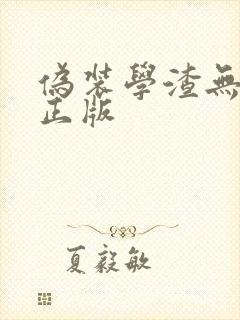 偽裝學渣無
正版
夏毅敏